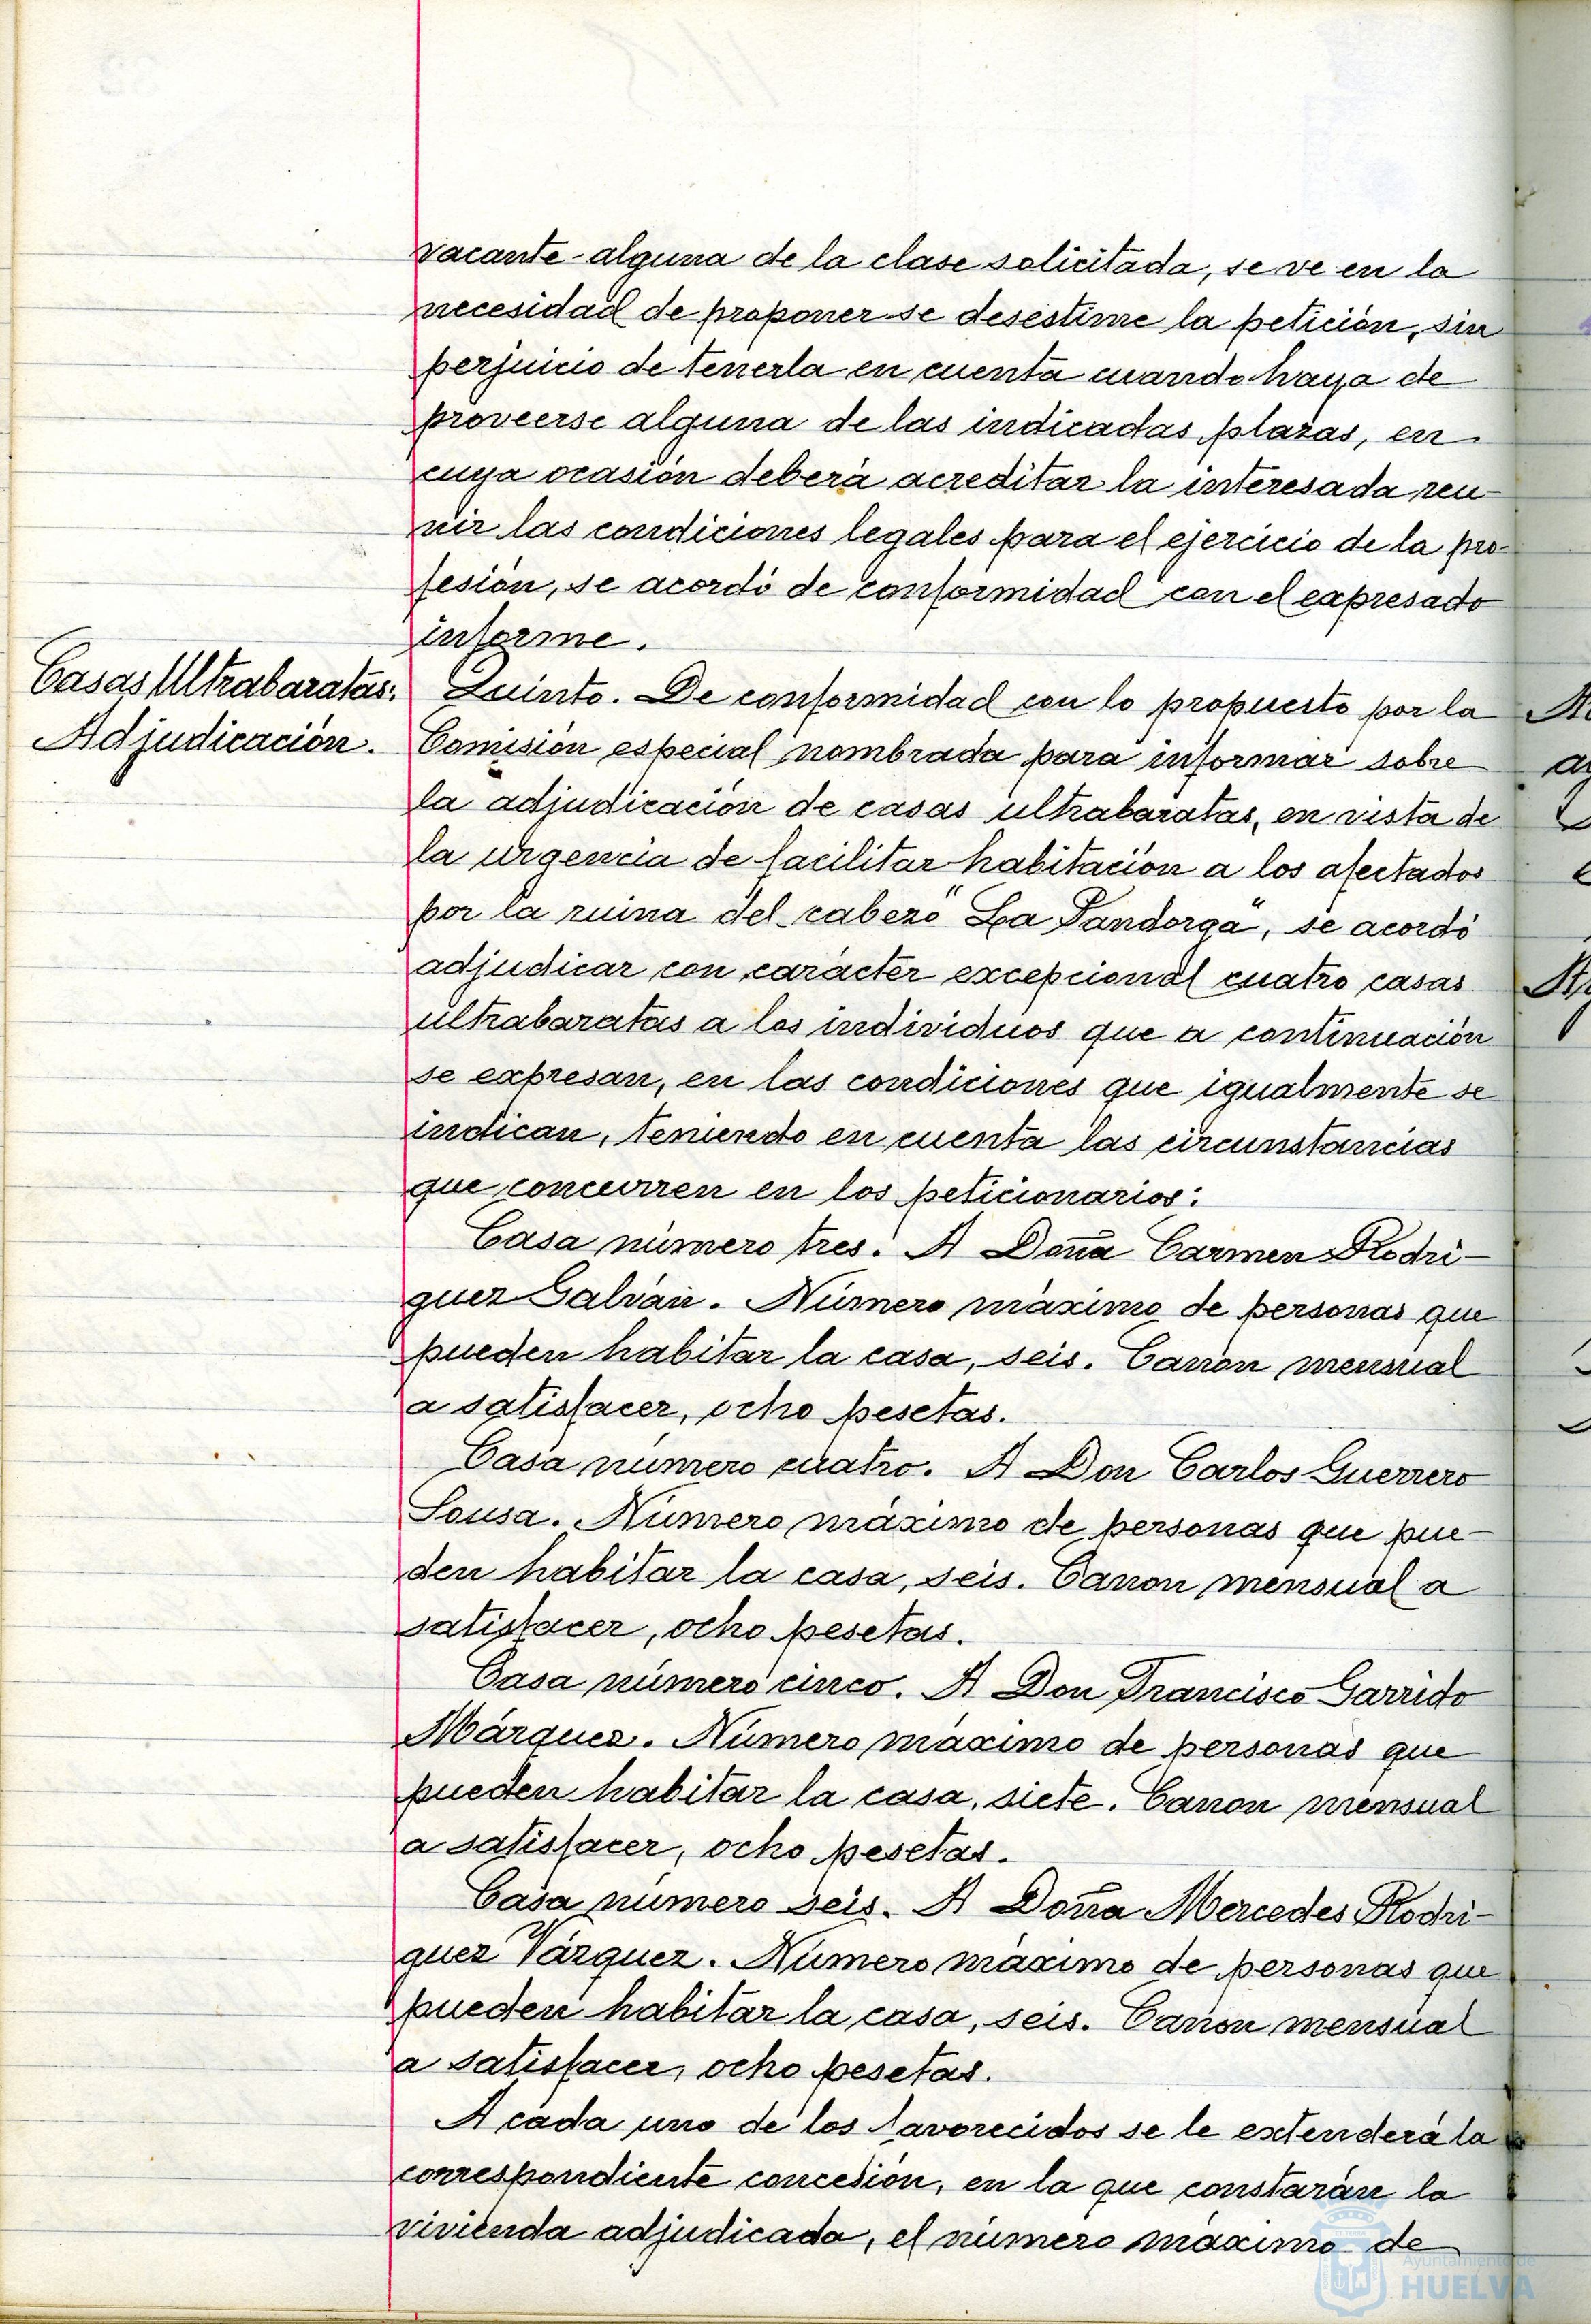 vacante alguna de la clase solicitada, se ve en la
necesidad de proponer se desestime la petición, sin
perjuicio de tenerla en cuenta cuando haya de
proveerse alguna de las indicadas plazas, en
cuya ocasión deberá acreditar la interesada reu-
nir las condiciones legales para el ejercicio de la pro-
fesión, se acordó de conformidad con el expresado
informe.
Casas Ultrabaratas.
Adjudicación.
Quinto. De conformidad con lo propuesto por la
Comisión especial nombrada para informar sobre
la adjudicación de casas ultrabaratas, en vista de
la urgencia de facilitar habitación a los afectados
por la ruina del cabezo "La Pandorga", se acordó
adjudicar con carácter excepcional cuatro casas
ultrabaratas a los individuos que a continuación
se expresan, en las condiciones que igualmente se
indican, teniendo en cuenta las circunstancias
que concurren en los peticionarios:
Casa número tres. A Doña Carmen Rodrí-
guez Galván. Número máximo de personas que
pueden habitar la casa, seis. Canon mensual
a satisfacer, ocho pesetas.
Casa número cuatro. A Don Carlos Guerrero
Sousa. Número máximo de personas que pue-
den habitar la casa, seis. Canon mensual a
satisfacer, ocho pesetas.
Casa número cinco. A Don Francisco Garrido
Márquez. Número máximo de personas que
pueden habitar la casa, siete. Canon mensual
a satisfacer, ocho pesetas.
Casa número seis. A Doña Mercedes Rodrí-
guez Várquez. Número máximo de personas que
pueden habitar la casa, seis. Canon mensual
a satisfacer, ocho pesetas.
A cada uno de los favorecidos se le extenderá la
correspondiente concesión, en la que constarán la
vivienda adjudicada, el número máximo de
Ayuntamiento de
HUELVA